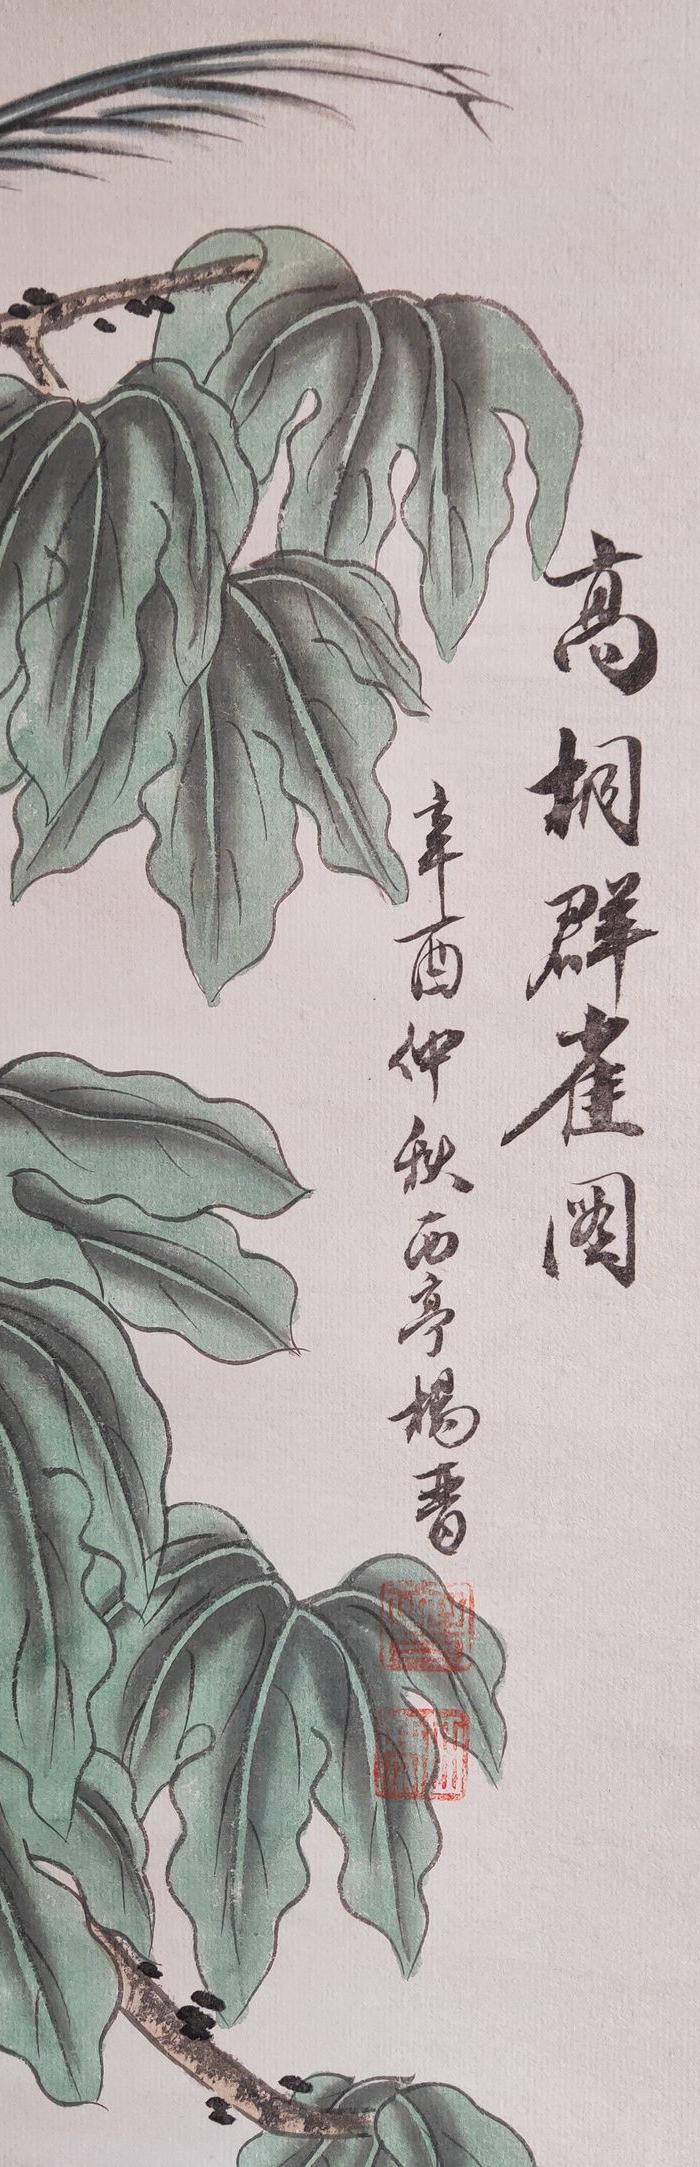 高桐群雀图
辛酉仲秋西亭楊晋